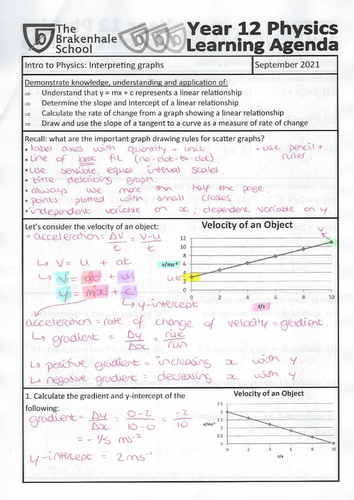 The
Brakenhale
School
Year 12 Physics
Learning Agenda
Intro to Physics: Interpreting graphs
September 2021
Demonstrate knowledge, understanding and application of:
⇒ Understand that y = mx + c represents a linear relationship
⇒ Determine the slope and intercept of a linear relationship
⇒ Calculate the rate of change from a graph showing a linear relationship
⇒ Draw and use the slope of a tangent to a curve as a measure of rate of change
Recall: what are the important graph drawing rules for scatter graphs?
• label axes with quantity + unit
• use pencil +
ruler
• line of best fit (no dot-to-dot)
• use sensible, equal interval scales
• title describing graph
• always use more than half the page
• points plotted with small crosses
• independent variable on x, dependent variable on y
Let's consider the velocity of an object:
• acceleration = ΔV/t = V-u/t
↳ V = u + at
↳ V = at + u
↳ y = mx + c
↳ y-intercept
Velocity of an Object
v/ms⁻¹
12
10
8
6
4
2
0
0 2 4 6 8 10
t/s
u
v
acceleration = rate of change of velocity = gradient.
↳ gradient = Δy/Δx = rise/run
↳ positive gradient = increasing x with y.
↳ negative gradient = decreasing x with y.
1. Calculate the gradient and y-intercept of the
following:
gradient = Δy/Δx = 0-2/10-0 = -2/10
= -1/5 ms⁻²
y-intercept = 2ms⁻¹
Velocity of an Object
v/ms⁻¹
2.5
2
1.5
1
0.5
0
0 2 4 6 8 10
t/s